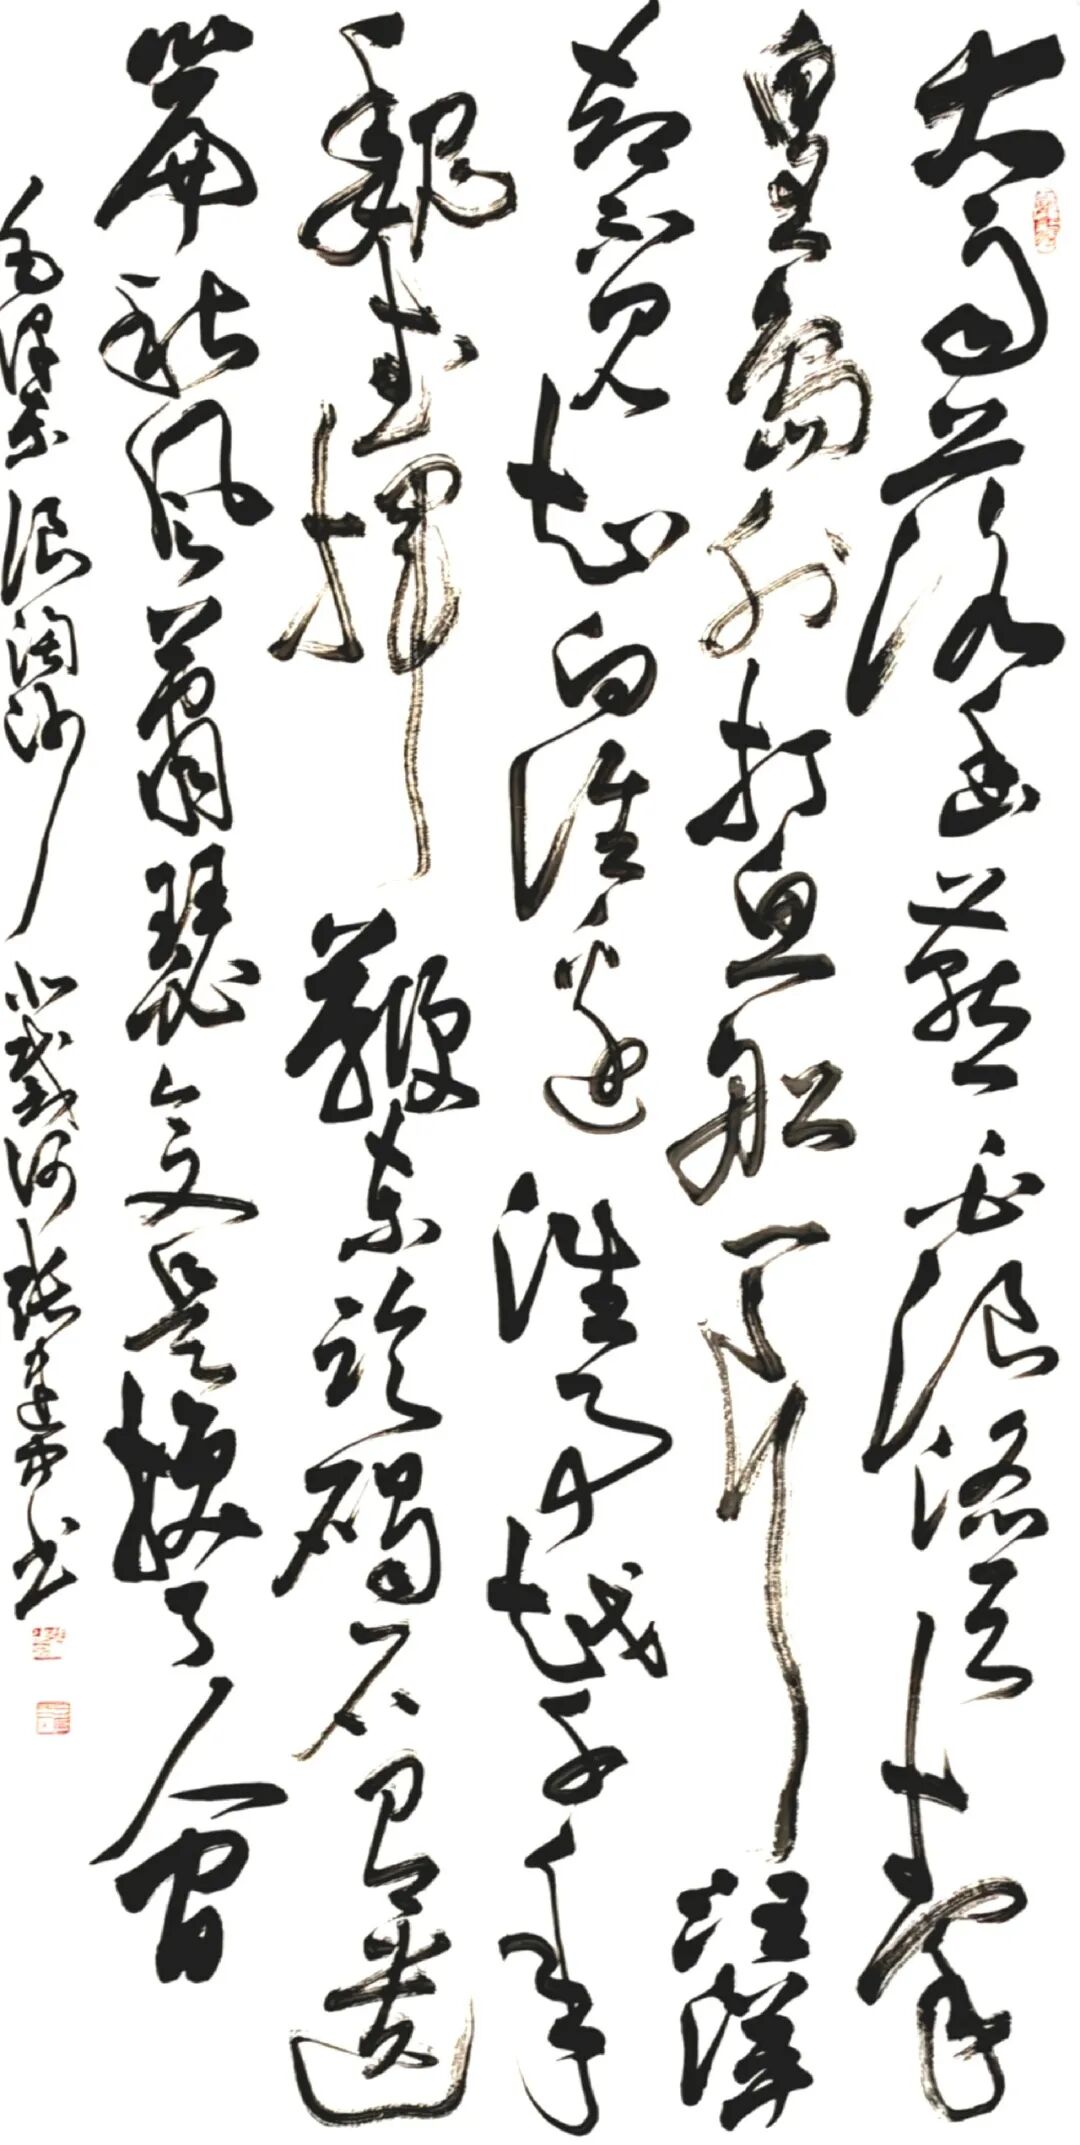 大雨落幽燕白浪滔天秦
皇岛外打鱼船一片汪洋
都不见知向谁边往事越千年
魏武挥鞭东临碣石有遗
篇秋风萧瑟今又是换了人间
毛泽东浪淘沙北戴河张建书